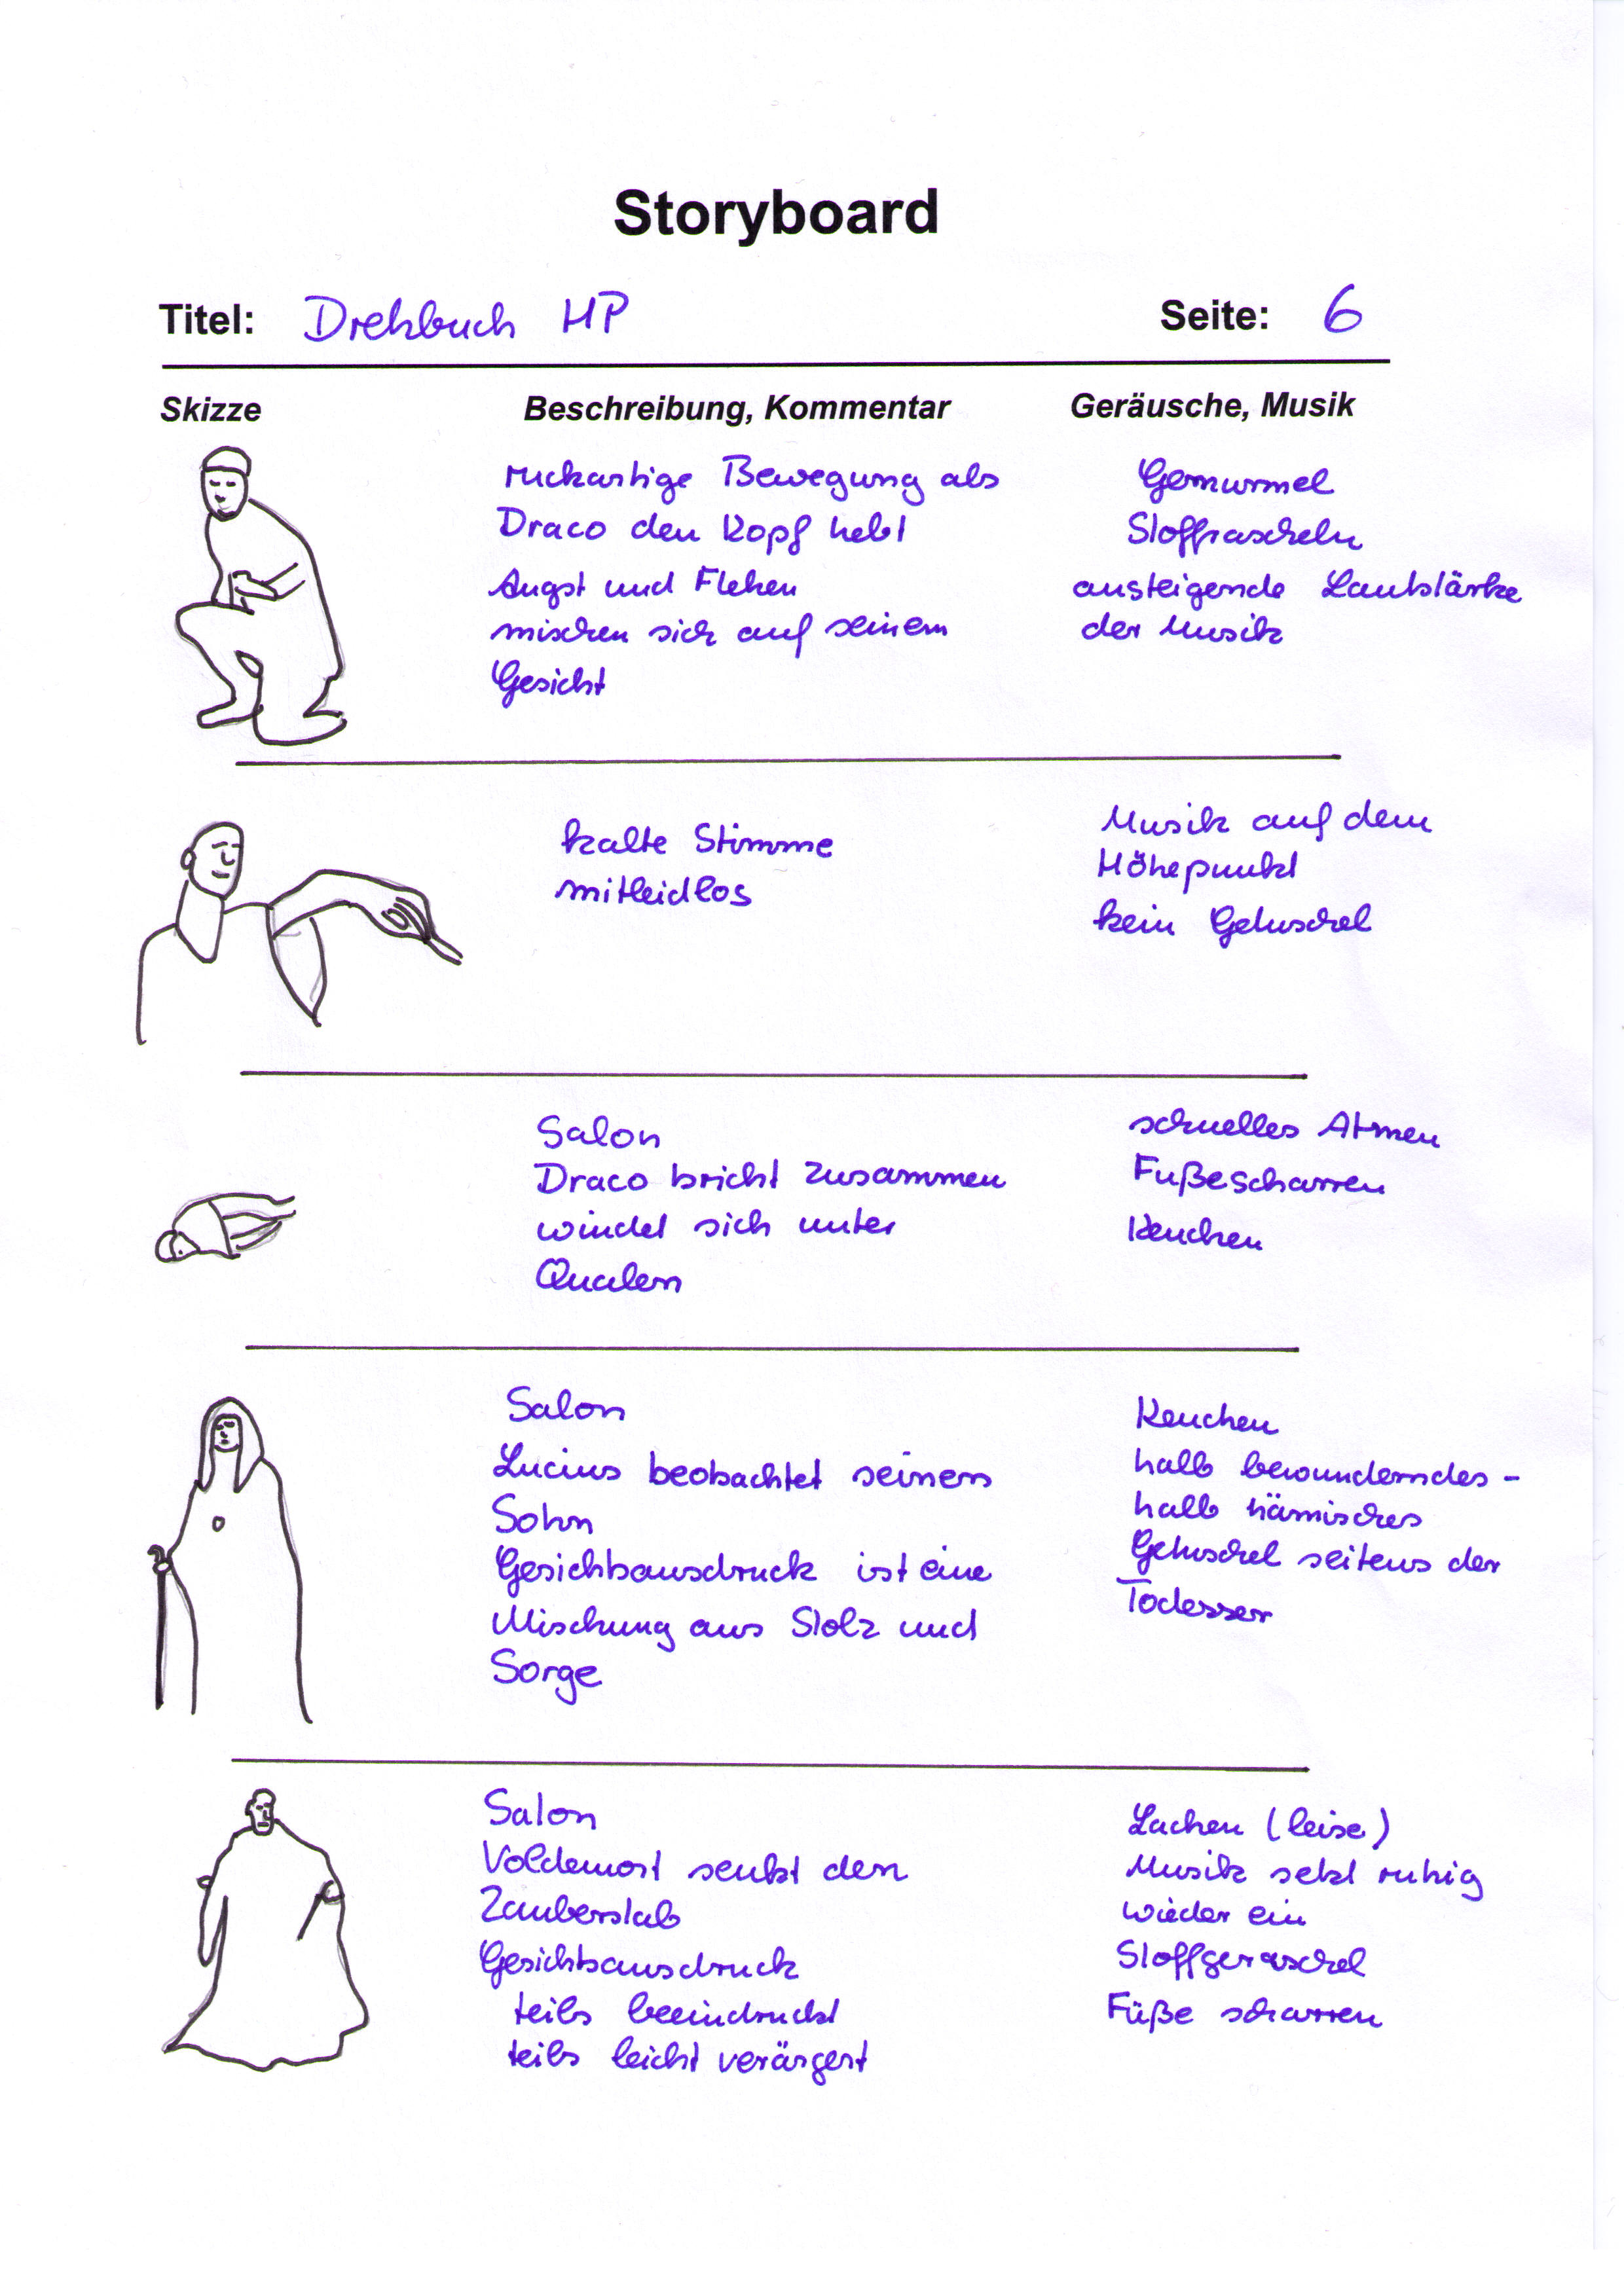 Storyboard
Titel: Drehbuch HP Seite: 6
Skizze Beschreibung, Kommentar Geräusche, Musik
ruckartige Bewegung als
Draco den Kopf hebt
Angst und Flehen
mischen sich auf seinem
Gesicht
Gemurmel
Stoffrascheln
ansteigende Lautstärke
der Musik
kalte Stimme
mitleidlos
Musik auf dem
Höhepunkt
kein Getuschel
Salon
Draco bricht zusammen
windet sich unter
Qualen
schnelles Atmen
Fußescharren
Keuchen
Salon
Lucius beobachtet seinen
Sohn
Gesichtsausdruck ist eine
Mischung aus Stolz und
Sorge
Keuchen
halb bewunderndes -
halb hämisches
Getuschel seitens der
Todesser
Salon
Voldemort senkt den
Zauberstab
Gesichtsausdruck
teils beeindruckt
teils leicht verärgert
Lachen (leise)
Musik setzt ruhig
wieder ein
Stoffgeraschel
Füße scharren